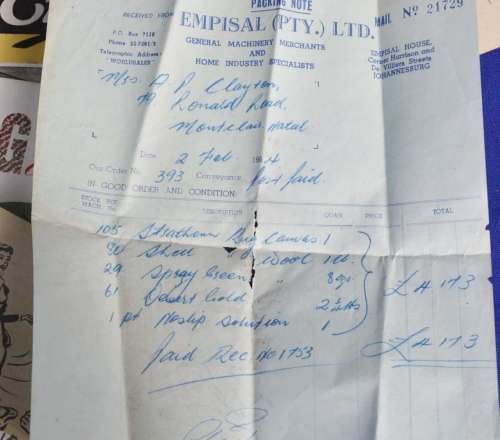 PACKING NOTE
RECEIVED FROM
EMPISAL (PTY.) LTD.
MAIL Nº 21729
P.O. Box 7138
GENERAL MACHINERY MERCHANTS
AND
HOME INDUSTRY SPECIALISTS
Telegraphic Address
"WORLDSALES"
EMPISAL HOUSE,
Corner Harrison and
De Villiers Streets
JOHANNESBURG
Mrs. A P Clayton
Ronald Road
Montclair Natal
Date 2 Feb 19
Our Order No. 393 Conveyance Post paid.
IN GOOD ORDER AND CONDITION
DESCRIPTION QUAN. PRICE TOTAL
105 Strathearn Rug Canvas 1
Shell " Wool
29 Spray Green "
61 Desert Gold
1 pt Noslip Solution 1
£4 17 3
Paid Rec No 1753 £4 17 3